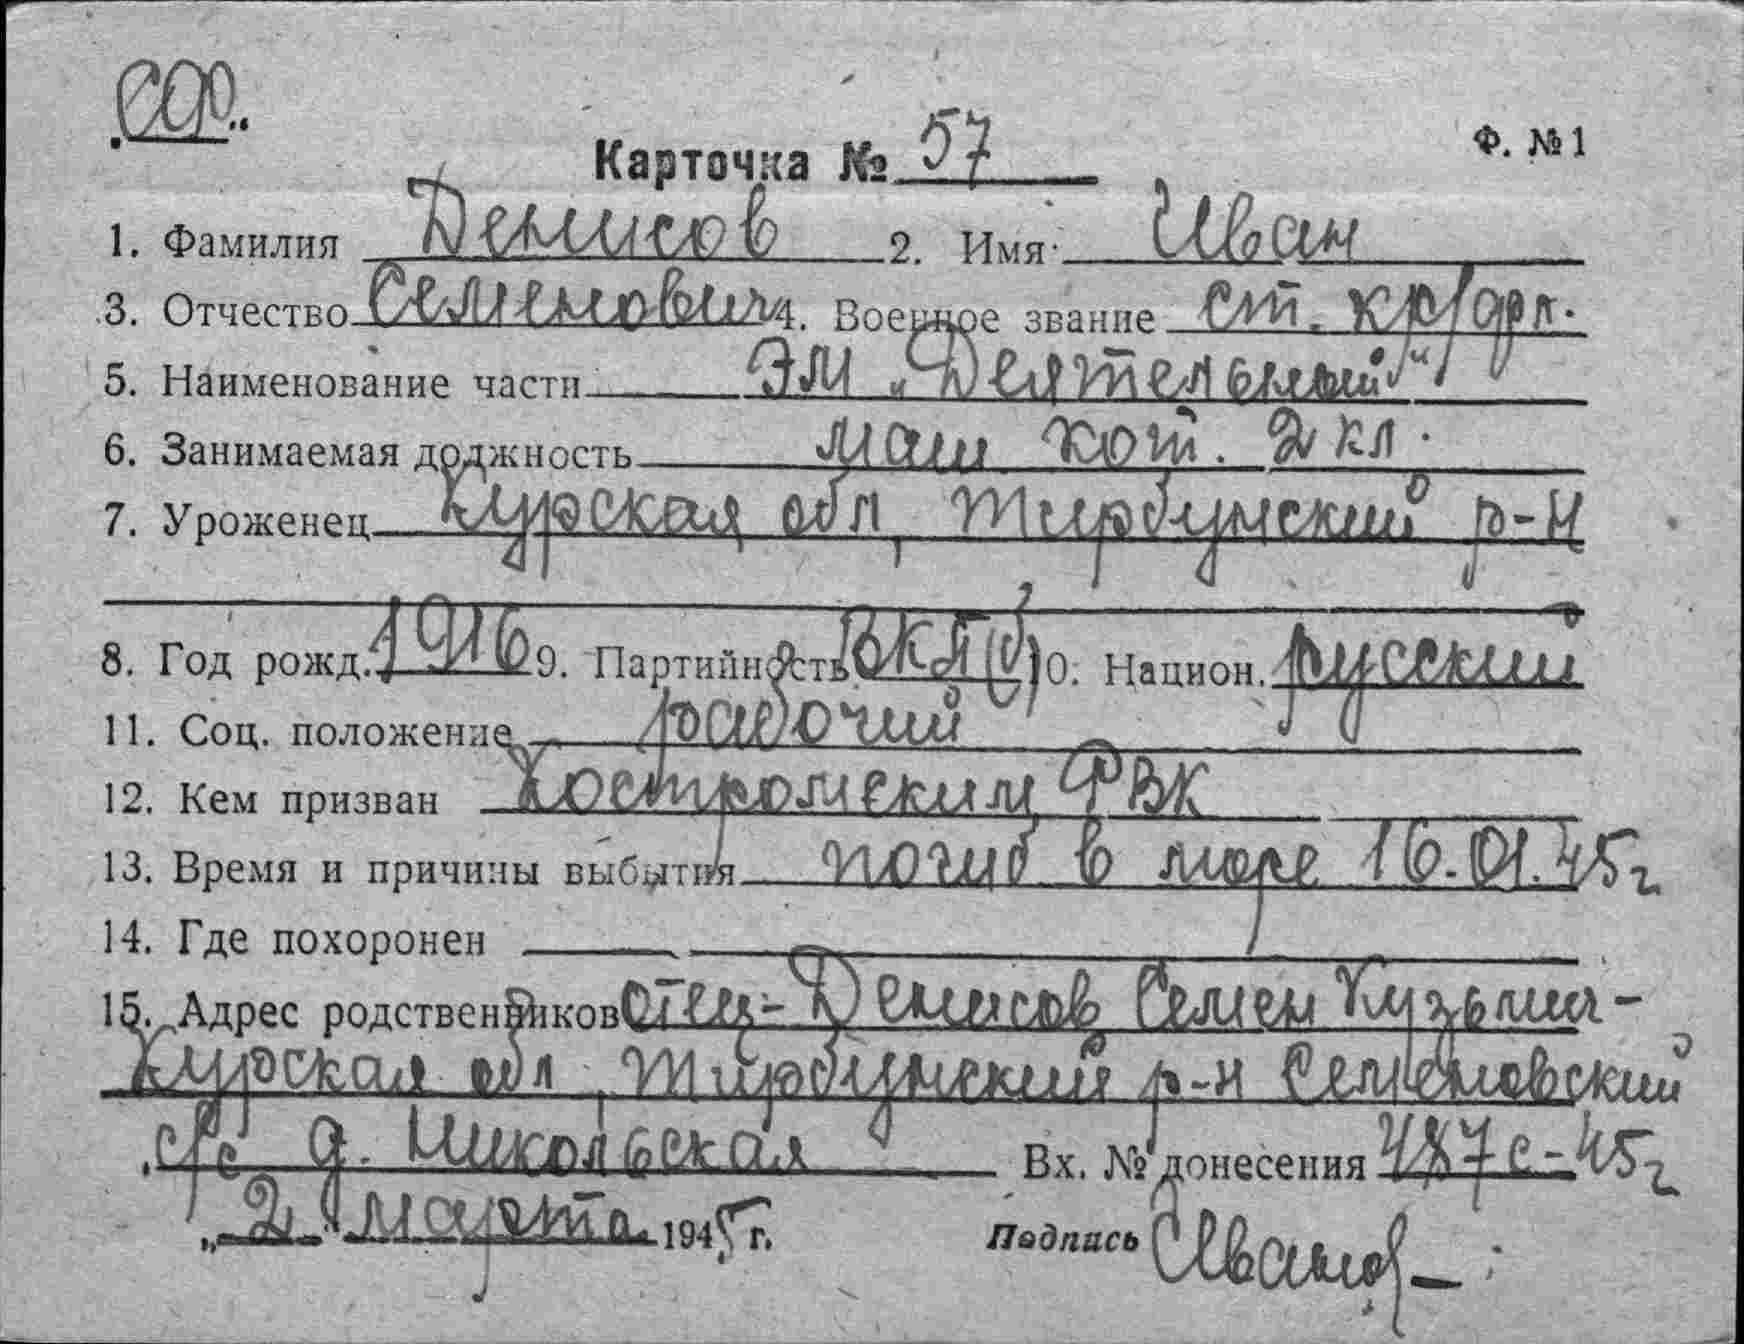 Ф. №1
Карточка № 57
1. Фамилия Денисов 2. Имя Иван
3. Отчество Семенович 4. Военное звание ст. кр/фл.
5. Наименование части ЭМ „Деятельный"
6. Занимаемая должность маш кот. 2 кл.
7. Уроженец Курская обл, Тирбунский р-н
8. Год рожд. 1916 9. Партийность ВКП(б) 10. Национ. русский
11. Соц. положение рабочий
12. Кем призван Костромским РВК
13. Время и причины выбытия погиб в море 16.01.45г
14. Где похоронен
15. Адрес родственников отец - Денисов Семен Кузьмич -
Курская обл, Тирбунский р-н Семеновский
с/с д. Никольская Вх. № донесения 487с-45г
„2" марта 1945 г. Подпись Иванов